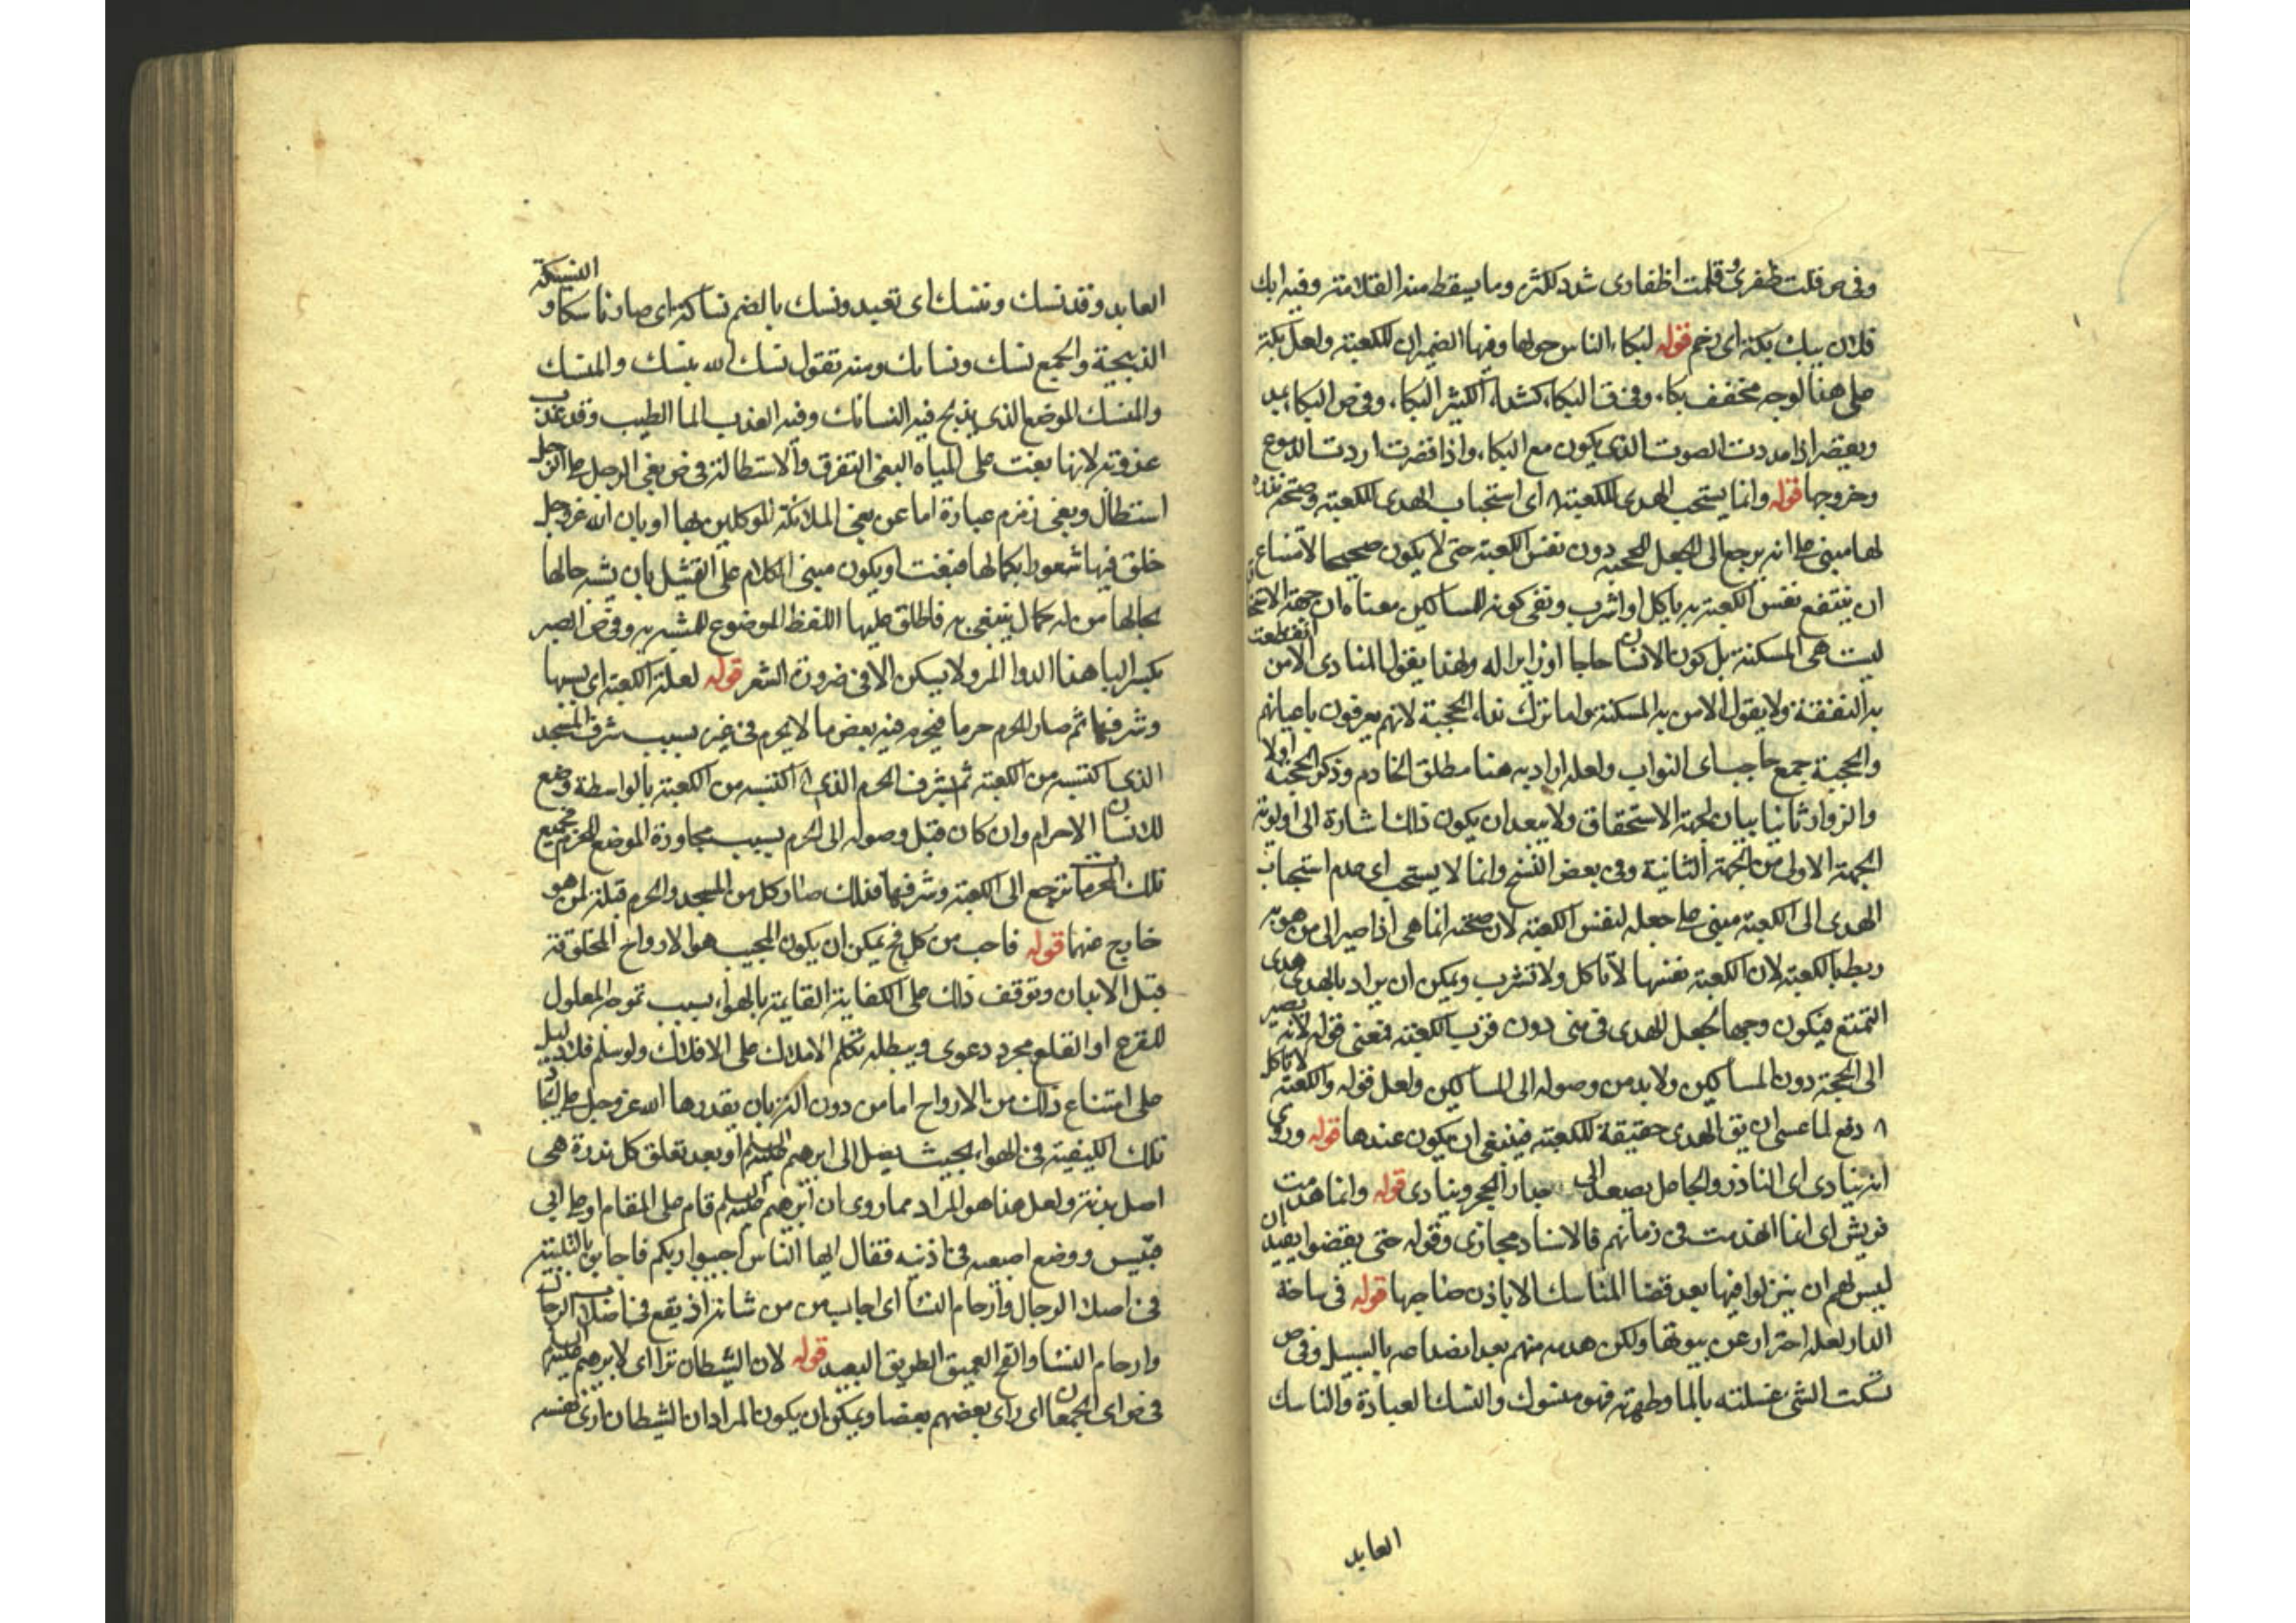 وفى ص قلمت ظفرى وقلمت اظفارى شدد للكثرة وما يسقط منه القلامة وفيه ابك
فلان يبك بكة اى زحم قوله لبكاء الناس حولها وفيها الضميران للكعبة ولعل بكة
على هذا الوجه مخفف بكاء وفى ق البكاء ككشداد الكثير البكاء وفى ص البكاء يمد
ويقصر اذا مددت الصوت الذى يكون مع البكاء واذا قصرت اردت الدموع
وخروجها قوله وانما يستحب الهدى للكعبة اى استحباب الهدى للكعبة وصحة نذره
لها مبنى على انه يرجع الى الجعل للحجبة دون نفس الكعبة حتى لا يكون صحيحا لامتناع
ان ينتفع نفس الكعبة به باكل او شرب ونفى كونه للمساكين معناه ان جهة الاستحقا
ليست هى المسكنة بل كون الانسان حاجا او زايرا له ولهذا يقول المنادى الا من انقطعت
به النفقة ولا يقول الا من به المسكنة واما ترك نداء الحجبة لانهم يعرفون باعيانهم
والحجبة جمع حاجب اى النواب ولعله اراد به هنا مطلق الخادم وذكر الحجبة اولا
والزوار ثانيا بيان لجهة الاستحقاق ولا يبعد ان يكون ذلك اشارة الى اولوية
الجهة الاولى من الجهة الثانية وفى بعض النسخ وانما لا يستحب اى عدم استحباب
الهدى الى الكعبة مبنى على جعله لنفس الكعبة لان صحته انما هى اذا صير الى من هو به
ربط بالكعبة لان الكعبة نفسها لا تاكل ولا تشرب ويمكن ان يراد بالهدى هدى
التمتع فيكون وجها لجعل الهدى فى منى دون قرب الكعبة فمعنى قوله لانه يصير
الى الحجبة دون المساكين ولا بد من وصوله الى المساكين ولعل قوله والكعبة لا تاكل
دفع لما عسى ان يق الهدى حقيقة للكعبة فينبغى ان يكون عندها قوله وروى
انه ينادى اى الناذر والجاعل يصعد الى جدار الحجر وينادى قوله وانما هدمت
قريش اى انما انهدمت فى زمانهم فالاسناد مجازى وقوله حتى يقضوا يفيد ان
ليس لهم ان ينزلوا فيها بعد قضا المناسك الا باذن صاحبها قوله فى ساحة
الدار لعله احتراز عن بيوتها ولكن هدمه منهم بعد انصداعه بالسيل وفى ص
نسكت الشئ غسلته بالماء وطهرته فهو منسوك والنسك العبادة والناسك
العابد
العابد وقد نسك وتنسك اى تعبد ونسك بالضم نساكة اى صار ناسكا والنسيكة
الذبيحة والجمع نسك ونسائك ومنه تقول نسك لله ينسك والمنسك
والمنسك الموضع الذى يذبح فيه النسائك وفيه العذب الماء الطيب وقد عذب
عذوبة لانها بغت على المياه البغى التفرق والاستطالة فى ص بغى الرجل على الرجل
استطال وبغى زمزم عبارة اما عن بغى الملائكة الموكلين بها او بان الله عز وجل
خلق فيها شعورا بكمالها فبغت او يكون مبنى الكلام على التمثيل بان يشبه حالها
بحالها من له كمال يبتغى به فاطلق عليها اللفظ الموضوع للمشبه به وفى ص الصبر
بكسر البا هذا الدوا المر ولا يسكن الا فى ضرورة الشعر قوله لعلة الكعبة اى بسببها
وشرفها ثم صار الحرم حرما فيحرم فيه بعض ما لا يحرم فى غيره بسبب شرف المسجد
الذى اكتسبه من الكعبة ثم شرف الحرم الذى اكتسبه من الكعبة بالواسطة وضع
للانسان الاحرام وان كان قبل وصوله الى الحرم بسبب مجاورة الموضع للحرم فجميع
تلك الحرمات ترجع الى الكعبة وشرفها فلذلك صار كل من المسجد والحرم قبلة لمن هو
خارج عنها قوله فاجيب من كل فج يمكن ان يكون المجيب هو الارواح المخلوقة
قبل الابدان وتوقف ذلك على الكيفية القايمة بالهوا بسبب تموجه المعلول
للقرع او القلع مجرد دعوى ويبطله تكلم الاملاك على الافلاك ولو سلم فلا دليل
على امتناع ذلك من الارواح اما من دون الة بان يقدرها الله عز وجل على ايجاد
تلك الكيفية فى الهوا بحيث يصل الى ابرهيم عليه السلم او بعد تعلق كل بذرة هى
اصل بدنه ولعل هذا هو المراد مما روى ان ابرهيم عليه السلم قام على المقام او على ابى
قبيس ووضع اصبعه فى اذنيه فقال ايها الناس اجيبوا ربكم فاجابوه بالتلبية
فى اصلاب الرجال وارحام النسا اى اجاب من من شانه ان يقع فى اصلاب الرجال
وارحام النسا والفج العميق الطريق البعيد قوله لان الشيطان تراءى لابرهيم عليه السلم
فى ص تراءى الجمعان اى راى بعضهم بعضا ويمكن ان يكون المراد ان الشيطان ارى نفسه